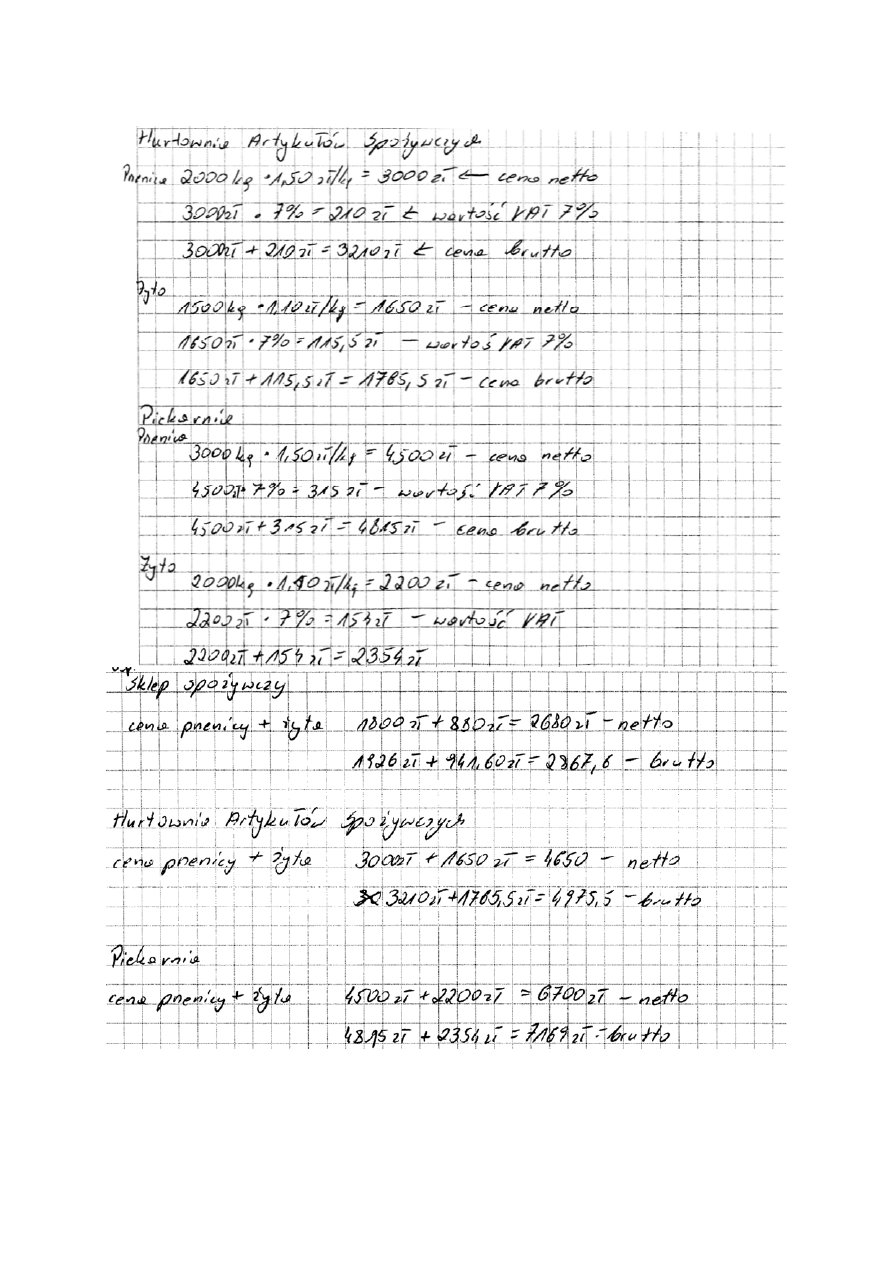 Hurtownia Artykułów Spożywczych
Pszenica 2000 kg · 1,50 zł/kg = 3000 zł ← cena netto
3000zł · 7% = 210 zł ← wartość VAT 7%
3000zł + 210 zł = 3210 zł ← cena brutto
Żyto
1500 kg · 1,10 zł/kg = 1650 zł – cena netto
1650zł · 7% = 115,5 zł – wartoś VAT 7%
1650 zł + 115,5 zł = 1765,5 zł – cena brutto
Piekarnia
Pszenica
3000 kg · 1,50 zł/kg = 4500 zł – cena netto
4500zł · 7% = 315 zł – wartość VAT 7%
4500 zł + 315 zł = 4815 zł – cena brutto
Żyto
2000kg · 1,10 zł/kg = 2200 zł – cena netto
2200 zł · 7% = 154 zł – wartość VAT
2200zł + 154 zł = 2354 zł
Sklep spożywczy
cena pszenicy + żyta 1800 zł + 880 zł = 2680 zł – netto
1926 zł + 941,60 zł = 2867,6 – brutto
Hurtownia Artykułów Spożywczych
cena pszenicy + żyta 3000zł + 1650 zł = 4650 – netto
3210 zł + 1765,5 zł = 4975,5 – brutto
Piekarnia
cena pszenicy + żyta 4500 zł + 2200 zł = 6700 zł – netto
4815 zł + 2354 zł = 7169 zł – brutto